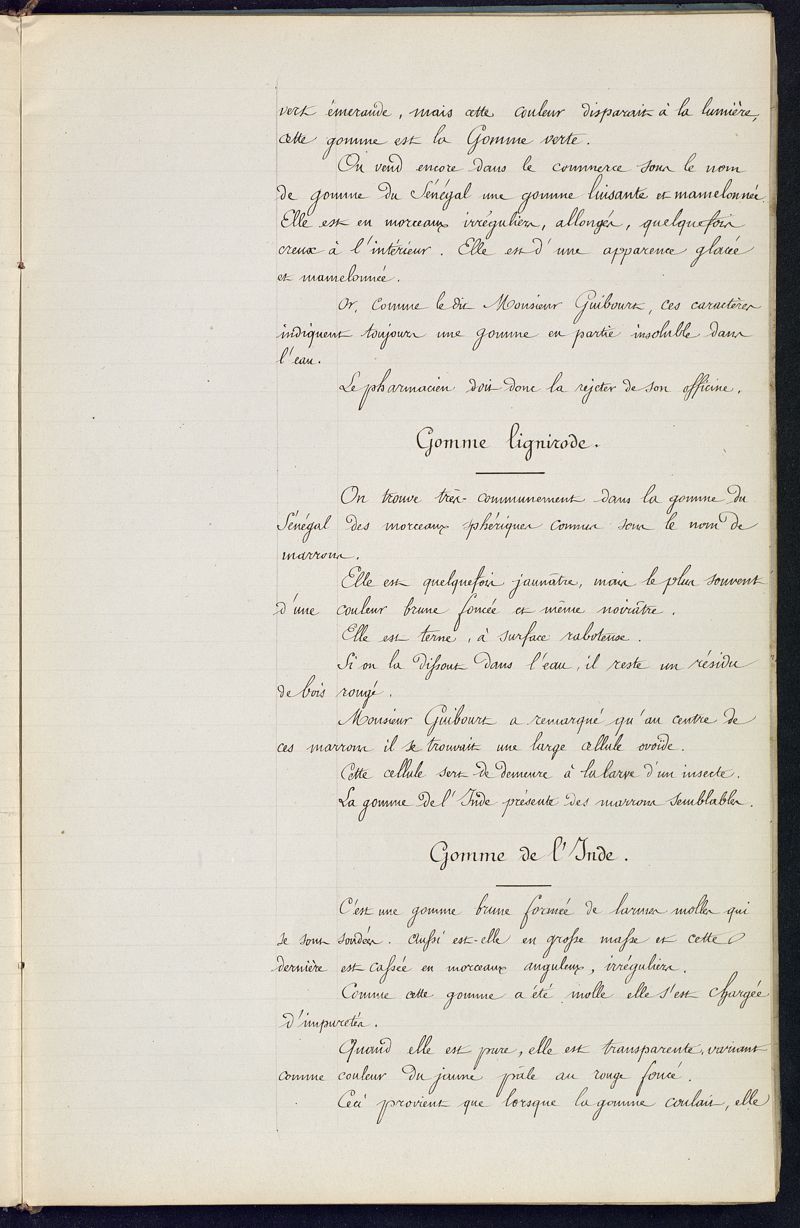 vert émeraude, mais cette couleur disparait à la lumière,
cette gomme est la Gomme verte.
On vend encore dans le commerce sous le nom
de gomme du Sénégal une gomme luisante et mamelonnée.
Elle est en morceaux irréguliers, allongés, quelquefois
creux à l'intérieur. Elle est d'une apparence glacée
et mamelonnée.
Or, comme le dit Monsieur Guibourt, ces caractères
indiquent toujours une gomme en partie insoluble dans
l'eau.
Le pharmacien doit donc la rejeter de son officine.
Gomme lignirode.
On trouve très-communément dans la gomme du
Sénégal des morceaux sphériques connus sous le nom de
marrons.
Elle est quelquefois jaunâtre, mais le plus souvent
d'une couleur brune foncée et même noirâtre.
Elle est terne, à surface raboteuse.
Si on la dissout dans l'eau, il reste un résidu
de bois rongé.
Monsieur Guibourt a remarqué qu'au centre de
ces marrons il se trouvait une large cellule ovoïde.
Cette cellule sert de demeure à la larve d'un insecte.
La gomme de l'Inde présente des marrons semblables.
Gomme de l'Inde.
C'est une gomme brune formée de larmes molles qui
se sont soudées. Aussi est-elle en grosse masse et cette
dernière est cassée en morceaux anguleux, irréguliers.
Comme cette gomme a été molle elle s'est chargée
d'impuretés.
Quand elle est pure, elle est transparente, variant
comme couleur du jaune pâle au rouge foncé.
Ceci provient que lorsque la gomme coulait, elle